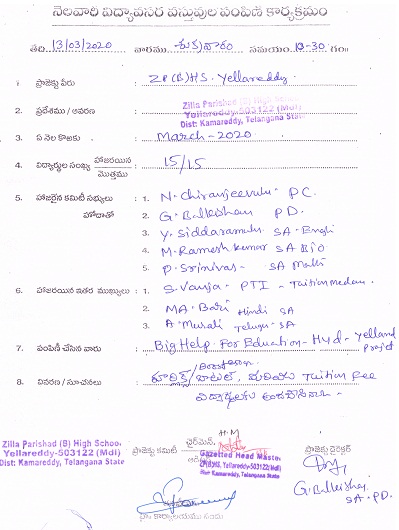 నెలవారి విద్యావసర వస్తువుల పంపిణి కార్యక్రమం
తేది. 13/03/2020 వారము శుక్రవారం సమయం. 10-30 గం॥
1. ప్రాజెక్టు పేరు : ZP(B)HS. Yellareddy.
2. ప్రదేశము / ఆవరణ : Zilla Parishad (B) High School
Yellareddy-503122 (Mdl)
Dist: Kamareddy, Telangana State
3. ఏ నెల కొఱకు : March-2020
4. విద్యార్థుల సంఖ్య హాజరయిన / మొత్తము : 15/15
5. హాజరైన కమిటీ సభ్యులు : 1. N. Chiranjeevulu - P.C.
హోదాతో 2. G. Balkishan P.D.
3. Y. Siddaramulu SA - Engli
4. M. Ramesh kumar SA Bio
5. P. Srinivas - SA Maths
6. హాజరయిన ఇతర ముఖ్యులు : 1. S. Vanja - PTI - Tuition
2. MA. Bari Hindi SA
3. A. Murali Telugu - SA
7. పంపిణీ చేసిన వారు : Big Help For Education - Hyd - Yellareddy
Project
8. వివరణ / సూచనలు : మరియు Tuition Fee
H.M
Zilla Parishad (B) High School
Yellareddy-503122 (Mdl)
Dist: Kamareddy, Telangana State
ప్రాజెక్టు కమిటీ ఛైర్మెన్,
Gazetted Head Master
ZP(B)HS, Yellareddy-503122(Mdl)
Dist: Kamareddy, Telangana State
ప్రాజెక్టు డైరెక్టర్
G. Balkishan
SA. PD.